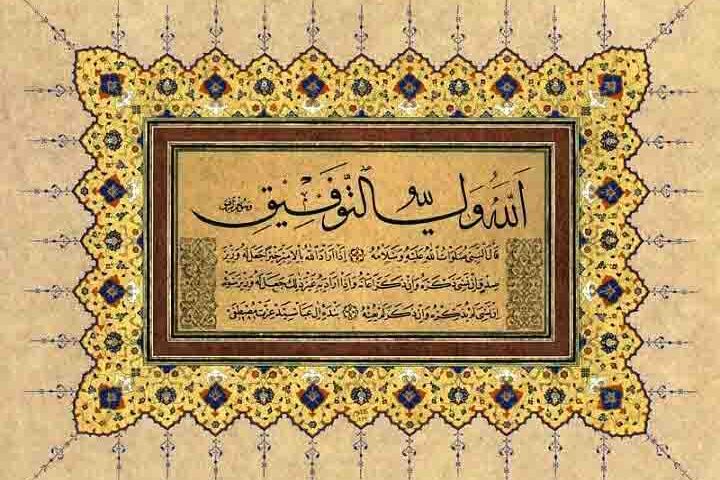 الله ولي التوفيق
قال النبي صلوات الله عليه وسلامه إذا أراد الله بالأمير خيرا جعل له وزير
صدق إن نسي ذكره وإن ذكر أعانه وإذا أراد به غير ذلك جعل له وزير سوء
إن نسي لم يذكره وإن ذكر لم يعنه آل عبا سيد عزت مصطفى